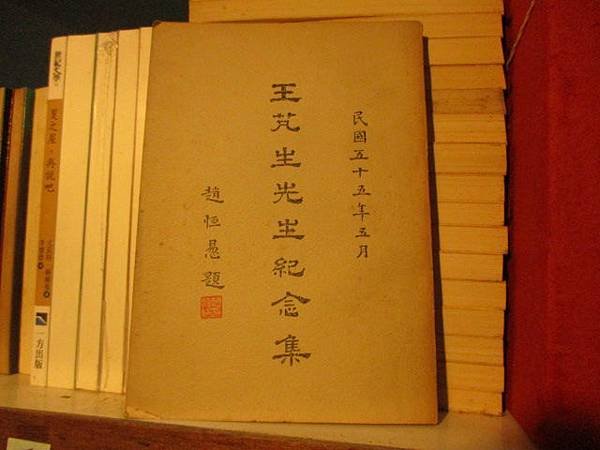 民國五十五年五月
王芃生先生紀念集
趙恒惖題
夏之屋·再說吧
一方出版